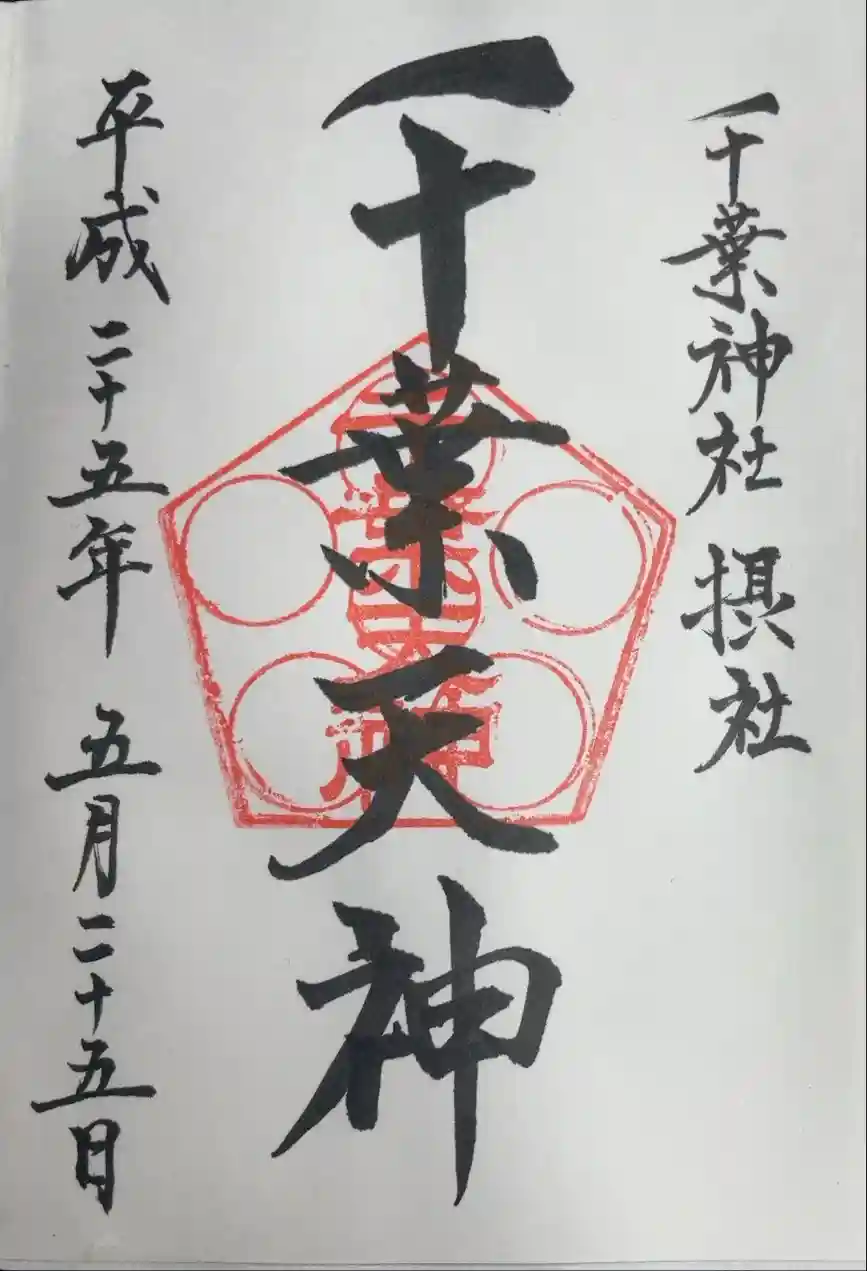 千葉神社 摂社
千葉天神
千葉天神
平成二十五年 五月二十五日